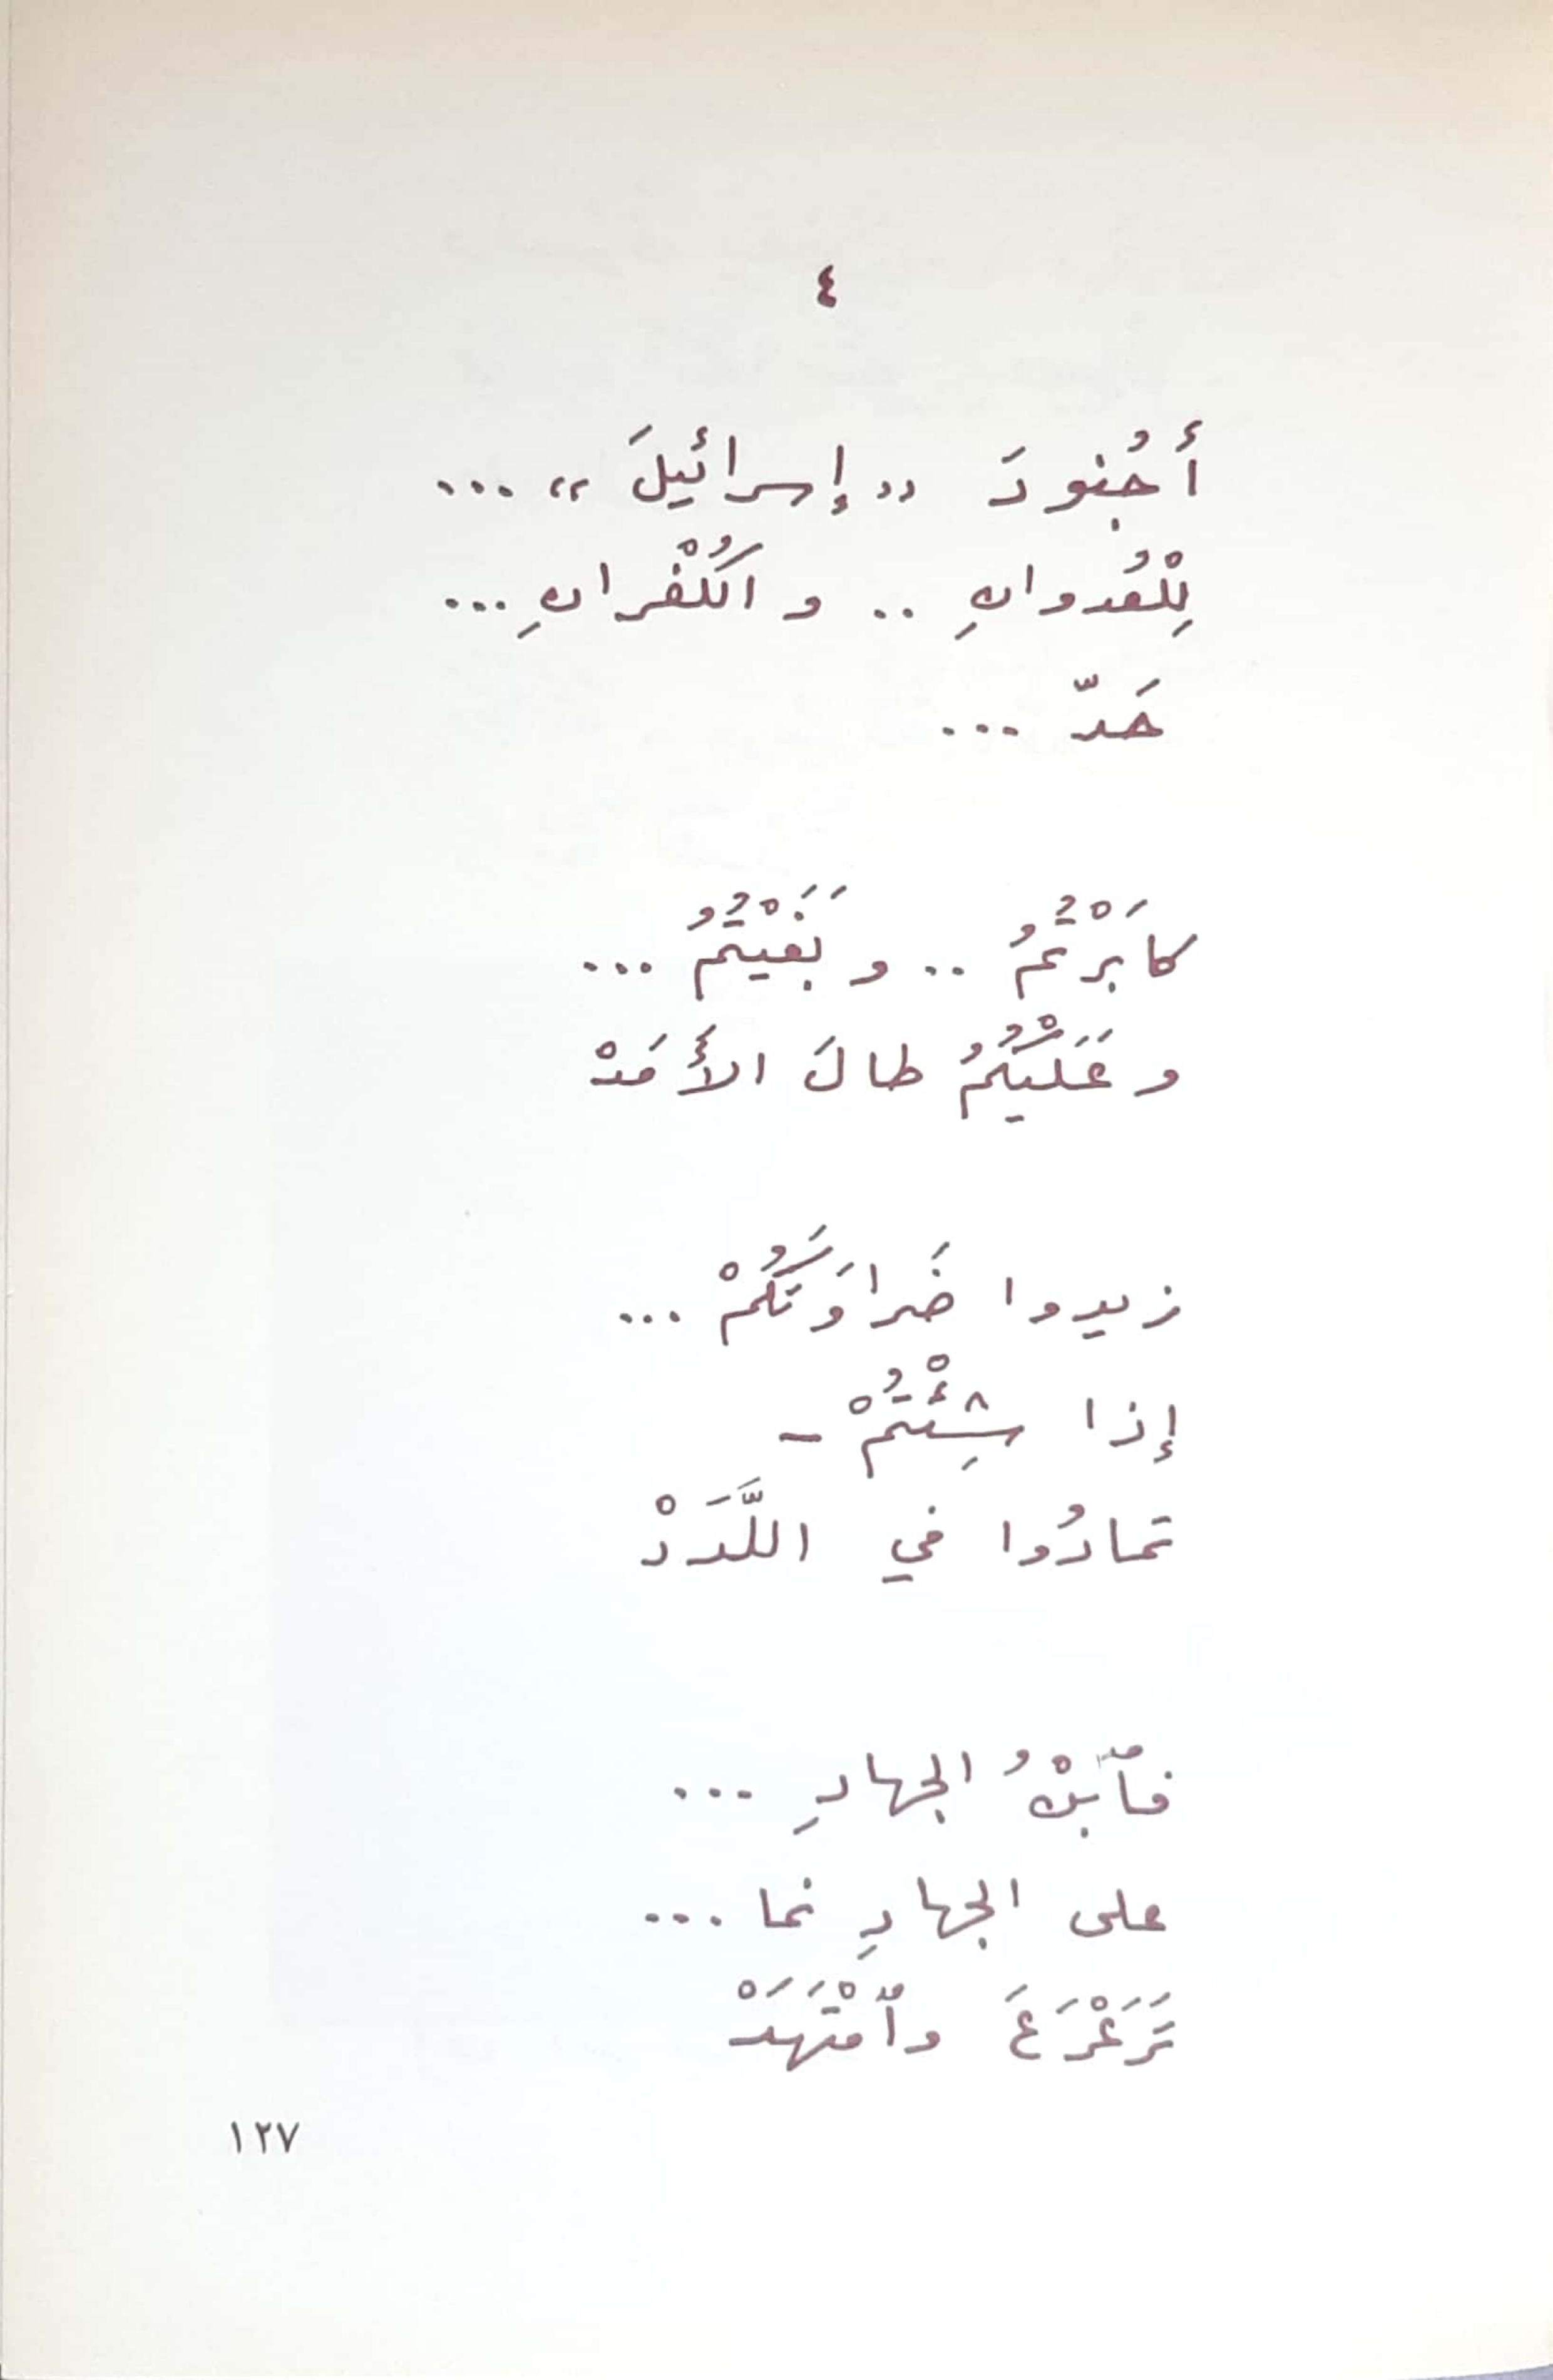 ٤
أَجُنودَ «إسرائيلَ» ...
لِلْعُدوانِ .. والكُفْرانِ ...
حَدّ ...
كابَرْتُمُ .. وبَغَيْتُمُ ...
وعَلَيْكُمُ طالَ الأَمَدْ
زيدوا ضَراوَتَكُمْ ...
إذا شِئْتُمْ -
تمادُوا في اللَّدَدْ
فٱبْنُ الجهادِ ...
على الجهادِ نما ...
تَرَعْرَعَ وٱمْتَهَدْ
١٢٧